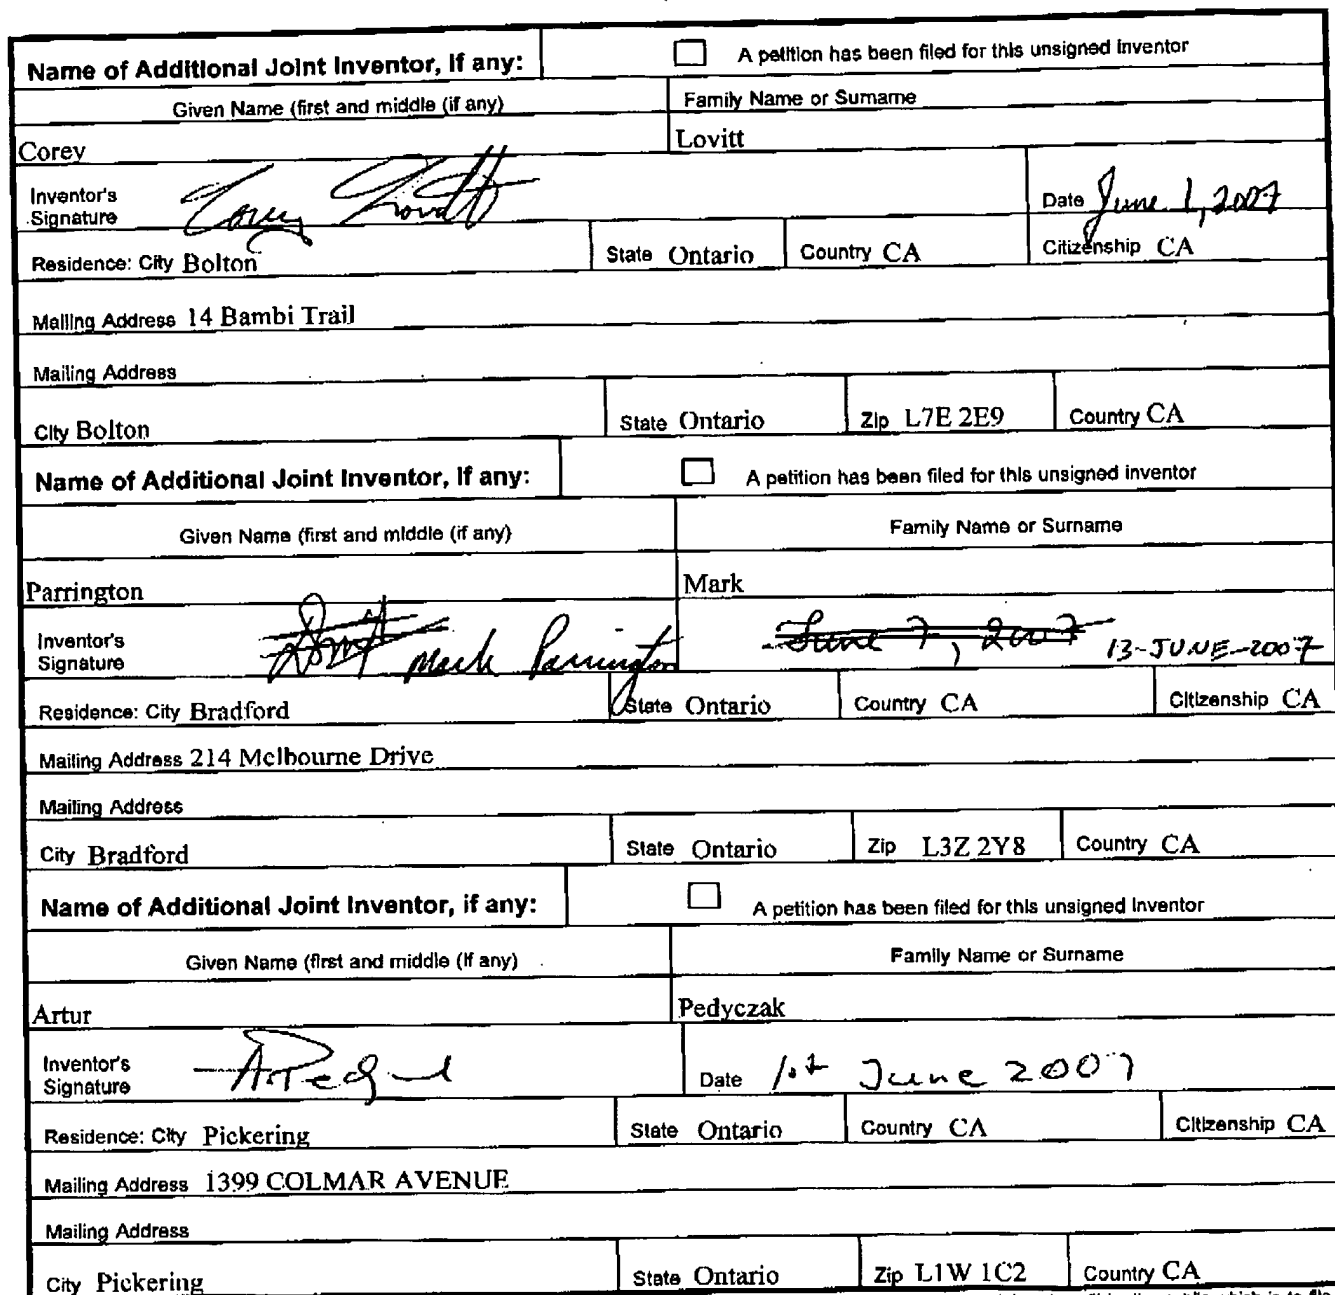 Name of Additional Joint Inventor, if any: A petition has been filed for this unsigned inventor
Given Name (first and middle (if any) Family Name or Surname
Corey Lovitt
Inventor's
Signature Corey Lovitt Date June 1, 2007
Residence: City Bolton State Ontario Country CA Citizenship CA
Mailing Address 14 Bambi Trail
Mailing Address
City Bolton State Ontario Zip L7E 2E9 Country CA
Name of Additional Joint Inventor, if any: A petition has been filed for this unsigned inventor
Given Name (first and middle (if any) Family Name or Surname
Parrington Mark
Inventor's
Signature Mark Parrington June 7, 2007 13-JUNE-2007
Residence: City Bradford State Ontario Country CA Citizenship CA
Mailing Address 214 Melbourne Drive
Mailing Address
City Bradford State Ontario Zip L3Z 2Y8 Country CA
Name of Additional Joint Inventor, if any: A petition has been filed for this unsigned inventor
Given Name (first and middle (if any) Family Name or Surname
Artur Pedyczak
Inventor's
Signature Date 1st June 2007
Residence: City Pickering State Ontario Country CA Citizenship CA
Mailing Address 1399 COLMAR AVENUE
Mailing Address
City Pickering State Ontario Zip L1W 1C2 Country CA